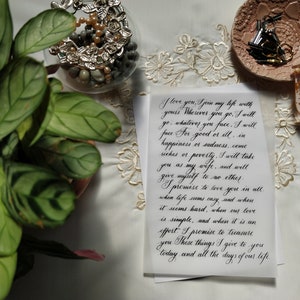 I love you, I join my life with
yours. Wherever you go, I will
go, whatever you face, I will
face. For good or ill, in
happiness or sadness, come
riches or poverty, I will take
you as my wife, and will
give myself to no other.
I promise to love you in all
when life seems easy and when
it seems hard, when our love
is simple, and when it is an
effort. I promise to treasure
you. These things I give to you
today and all the days of our life